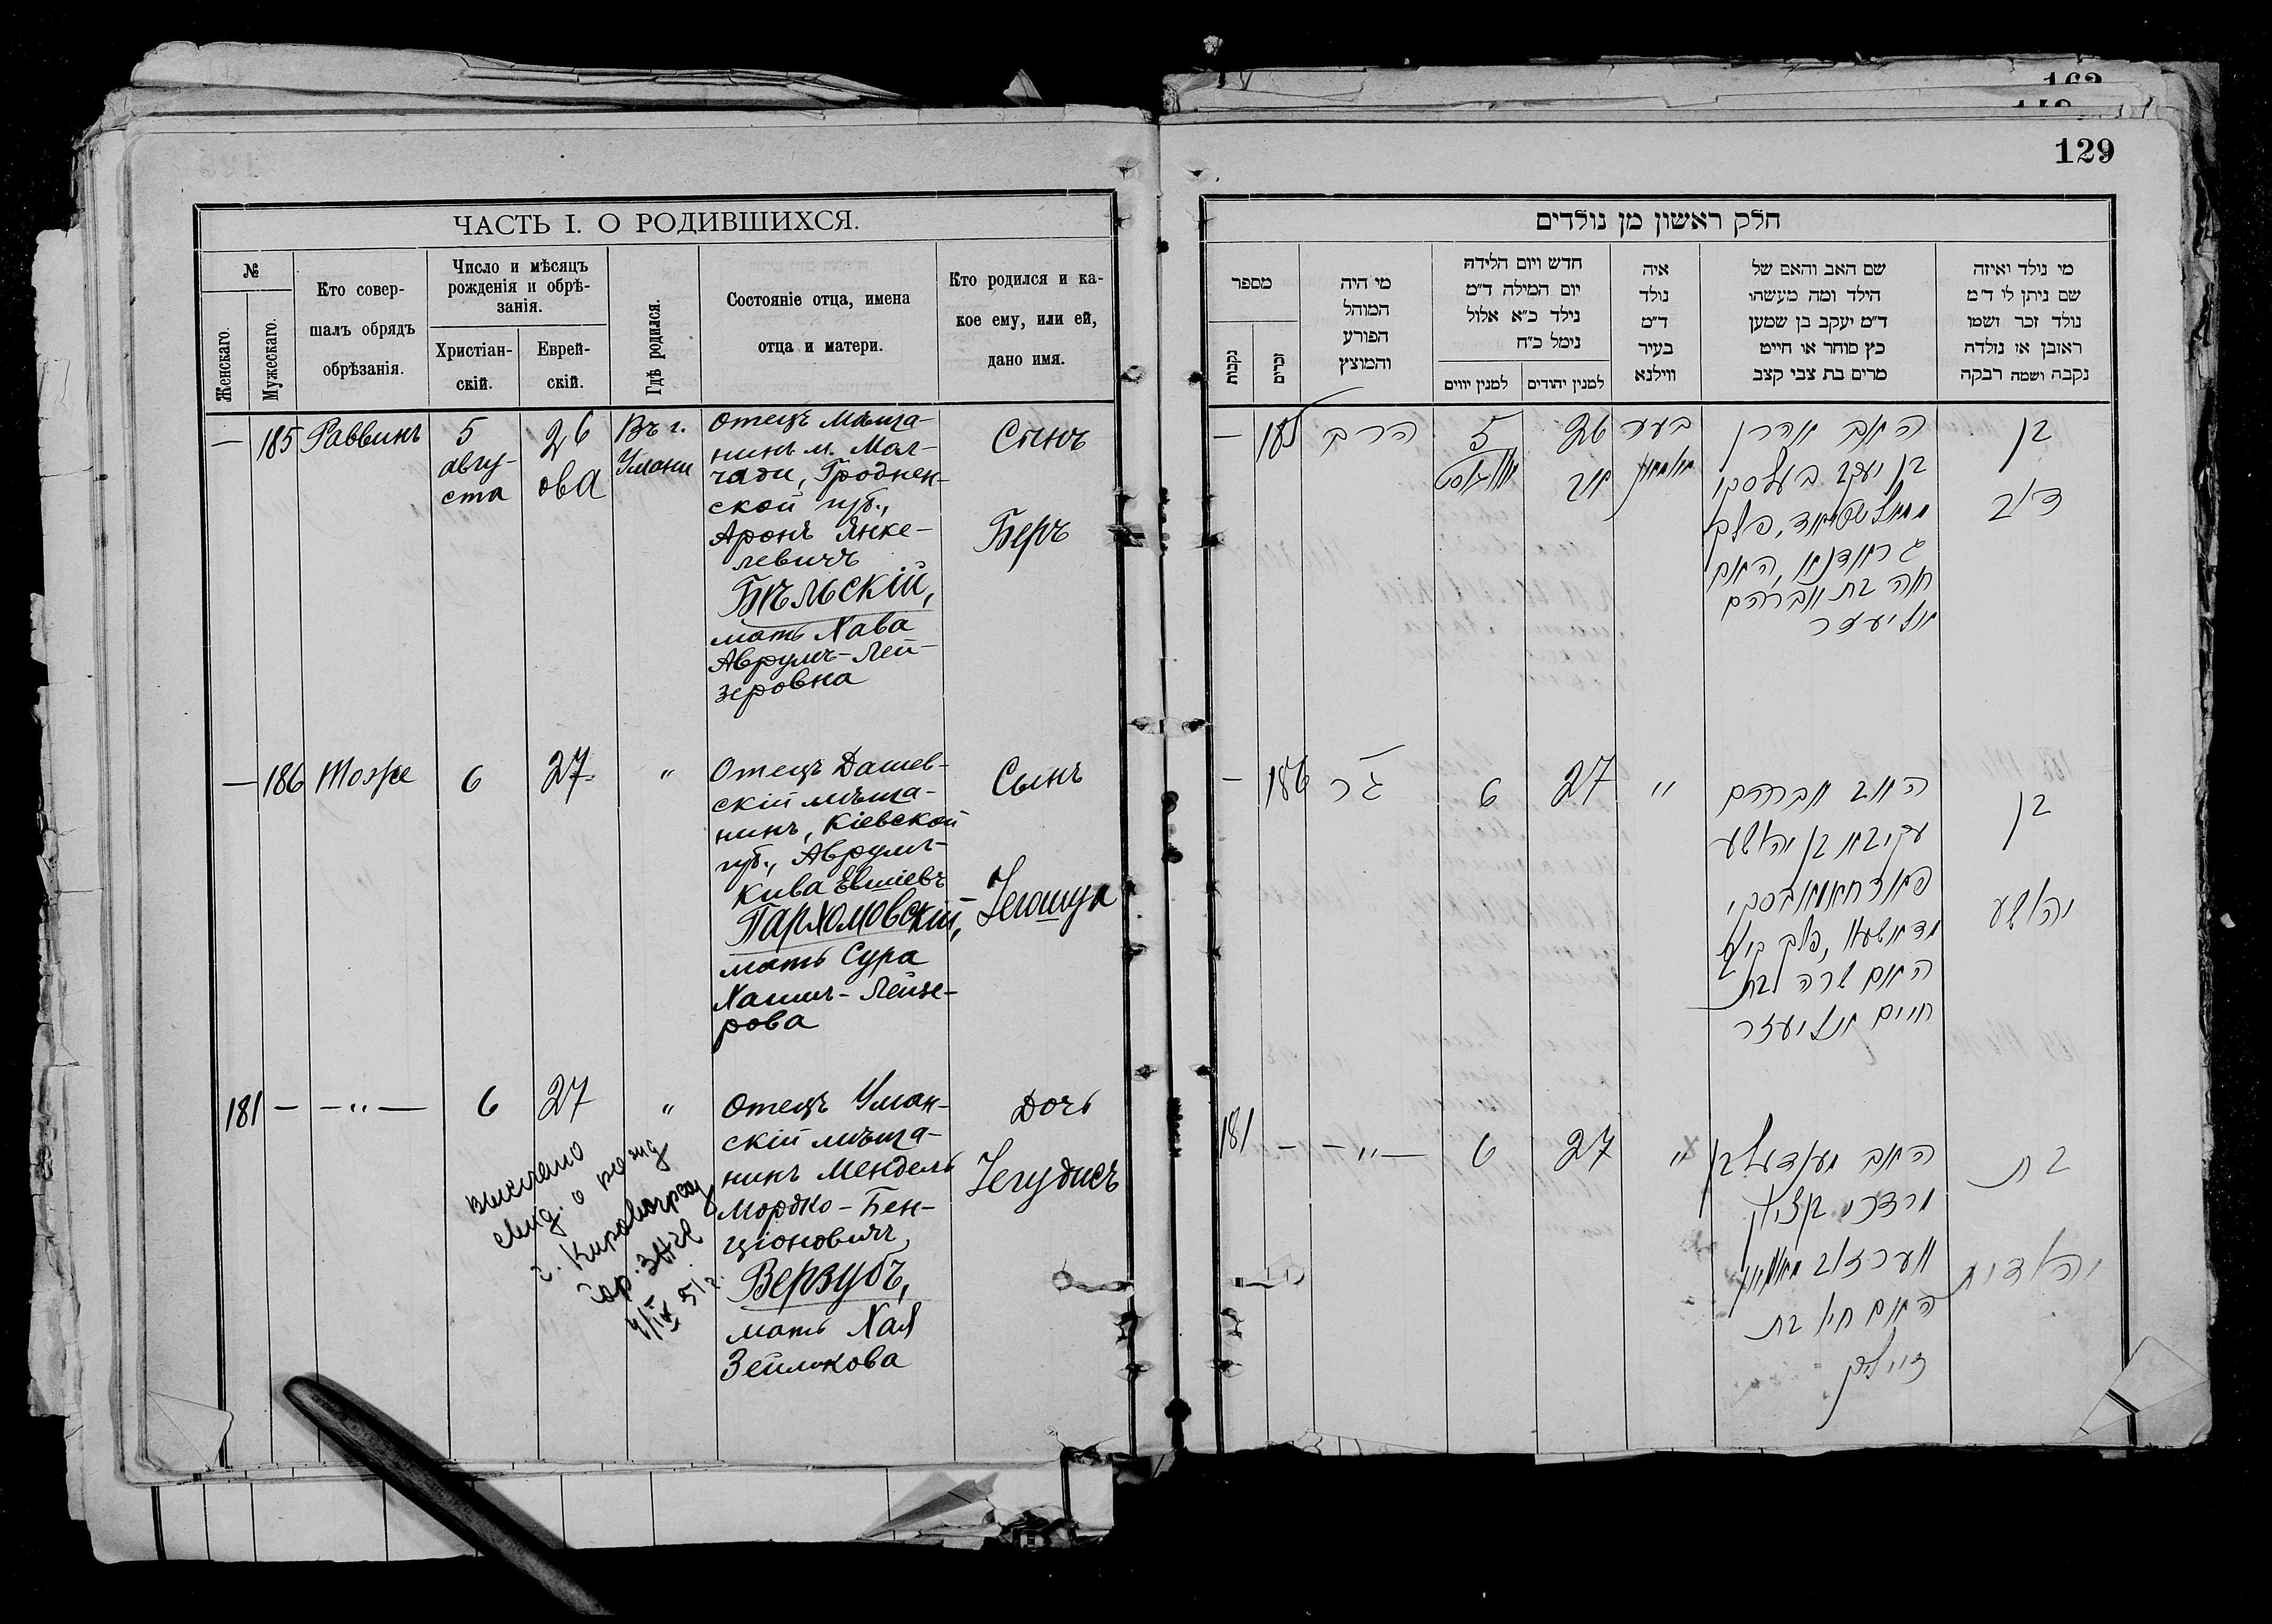 129
ЧАСТЬ I. О РОДИВШИХСЯ.
№
Женскаго.
Мужескаго.
Кто совер-
шалъ обрядъ
обрѣзанія.
Число и мѣсяцъ
рожденія и обрѣ-
занія.
Христіан-
скій.
Еврей-
скій.
Гдѣ родился.
Состояніе отца, имена
отца и матери.
Кто родился и ка-
кое ему, или ей,
дано имя.
— 185 Раввинъ
5
авгу-
ста
26
ова
Въ г.
Умани
Отецъ мѣща-
нинъ м. Мол-
чади, Гроднен-
ской губ.,
Аронъ Янке-
левичъ
Бѣльскій,
мать Хава
Аврумъ-Лей-
зеровна
Сынъ
Беръ
— 186 Тоже 6 27 "
Отецъ Дашев-
скій мѣща-
нинъ, Кіевской
губ., Аврумъ-
Кива Евшіевъ
Пархомовскій,
мать Сура
Хаимъ-Лейзе-
рова
Сынъ
Іегошуа
181 — —"— 6 27 "
Отецъ Уман-
скій мѣща-
нинъ Мендель
Мордко-Бен-
ціоновичъ
Верзубъ,
мать Хая
Зейликова
Дочь
Іегудисъ
выслано
о рожд
г. Кировоград
гор. ЗАГС
51 г.
חלק ראשון מן נולדים
מספר
נקבות
זכרים
מי היה
המוהל
הפורע
והמוצץ
חדש ויום הלידה
יום המילה ד״מ
נילד כ״א אלול
נימל כ״ח
למנין יווים
למנין יהודים
איה
נולד
ד״מ
בעיר
ווילנא
שם האב והאם של
הילד ומה מעשהו
ד״מ יעקב בן שמען
כץ סוחר או חייט
מרים בת צבי קצב
מי נולד ואיזה
שם ניתן לו ד״מ
נולד זכר ושמו
ראובן או נולדה
נקבה ושמה רבקה
— 185 הרב
5
אווגוסט
26
אב
בעיר
אומאן
האב אהרן
בן יעקב בעלסקי
גראדנא, האם
חוה בת אברהם
אליעזר
בן
דוב
— 186 6 27 "
האב אברהם
עקיבא בן יהושע
פארחאמאווסקי
האם שרה בת
חיים אליעזר
בן
יהושע
181 — —"— 6 27 "
האב מענדעל בן
מרדכי בן ציון
ווערזוב
האם חיה בת
זייליק
בת
יהודית